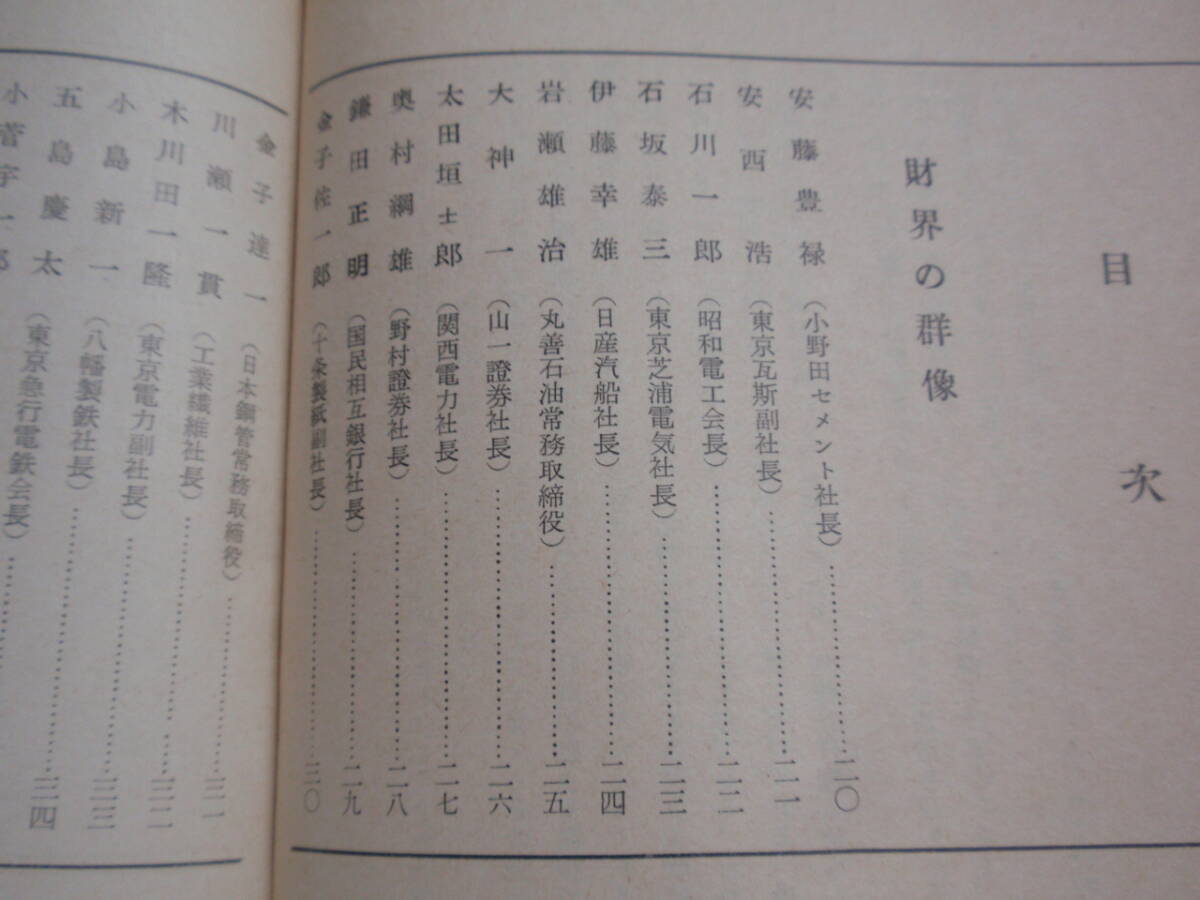 目次
財界の群像
安藤豊禄（小野田セメント社長）……………………二〇
安西浩（東京瓦斯副社長）……………………二一
石川一郎（昭和電工会長）……………………二二
石坂泰三（東京芝浦電気社長）……………………二三
伊藤幸雄（日産汽船社長）……………………二四
岩瀬雄治（丸善石油常務取締役）……………………二五
大神一（山一證券社長）……………………二六
太田垣士郎（関西電力社長）……………………二七
奥村綱雄（野村證券社長）……………………二八
鎌田正明（国民相互銀行社長）……………………二九
金子佐一郎（十条製紙副社長）……………………三〇
金子達一（日本鋼管常務取締役）……………………
川瀬一貫（工業繊維社長）……………………三一
木川田一隆（東京電力副社長）……………………三二
小島新一（八幡製鉄社長）……………………三三
五島慶太（東京急行電鉄会長）……………………三四
小菅宇一郎